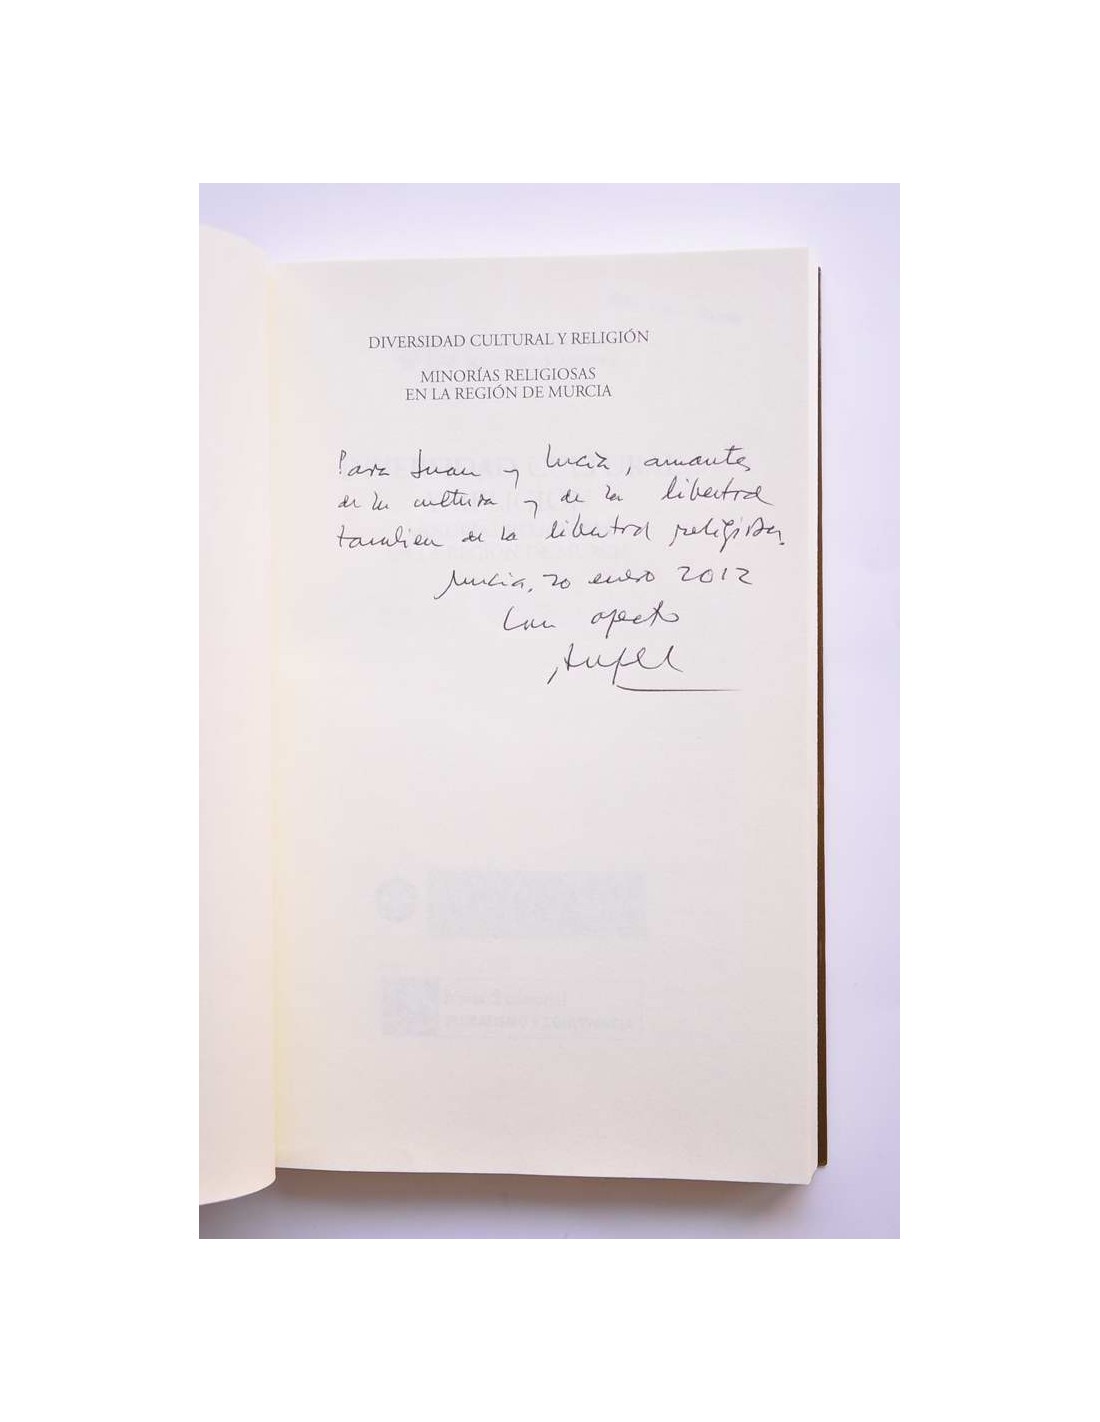 DIVERSIDAD CULTURAL Y RELIGIÓN
MINORÍAS RELIGIOSAS
EN LA REGIÓN DE MURCIA
Para Juan y Lucía, amantes
de la cultura y de la libertad
tambien de la libertad religiosa.
Murcia, 20 enero 2012
Con afecto
Angel